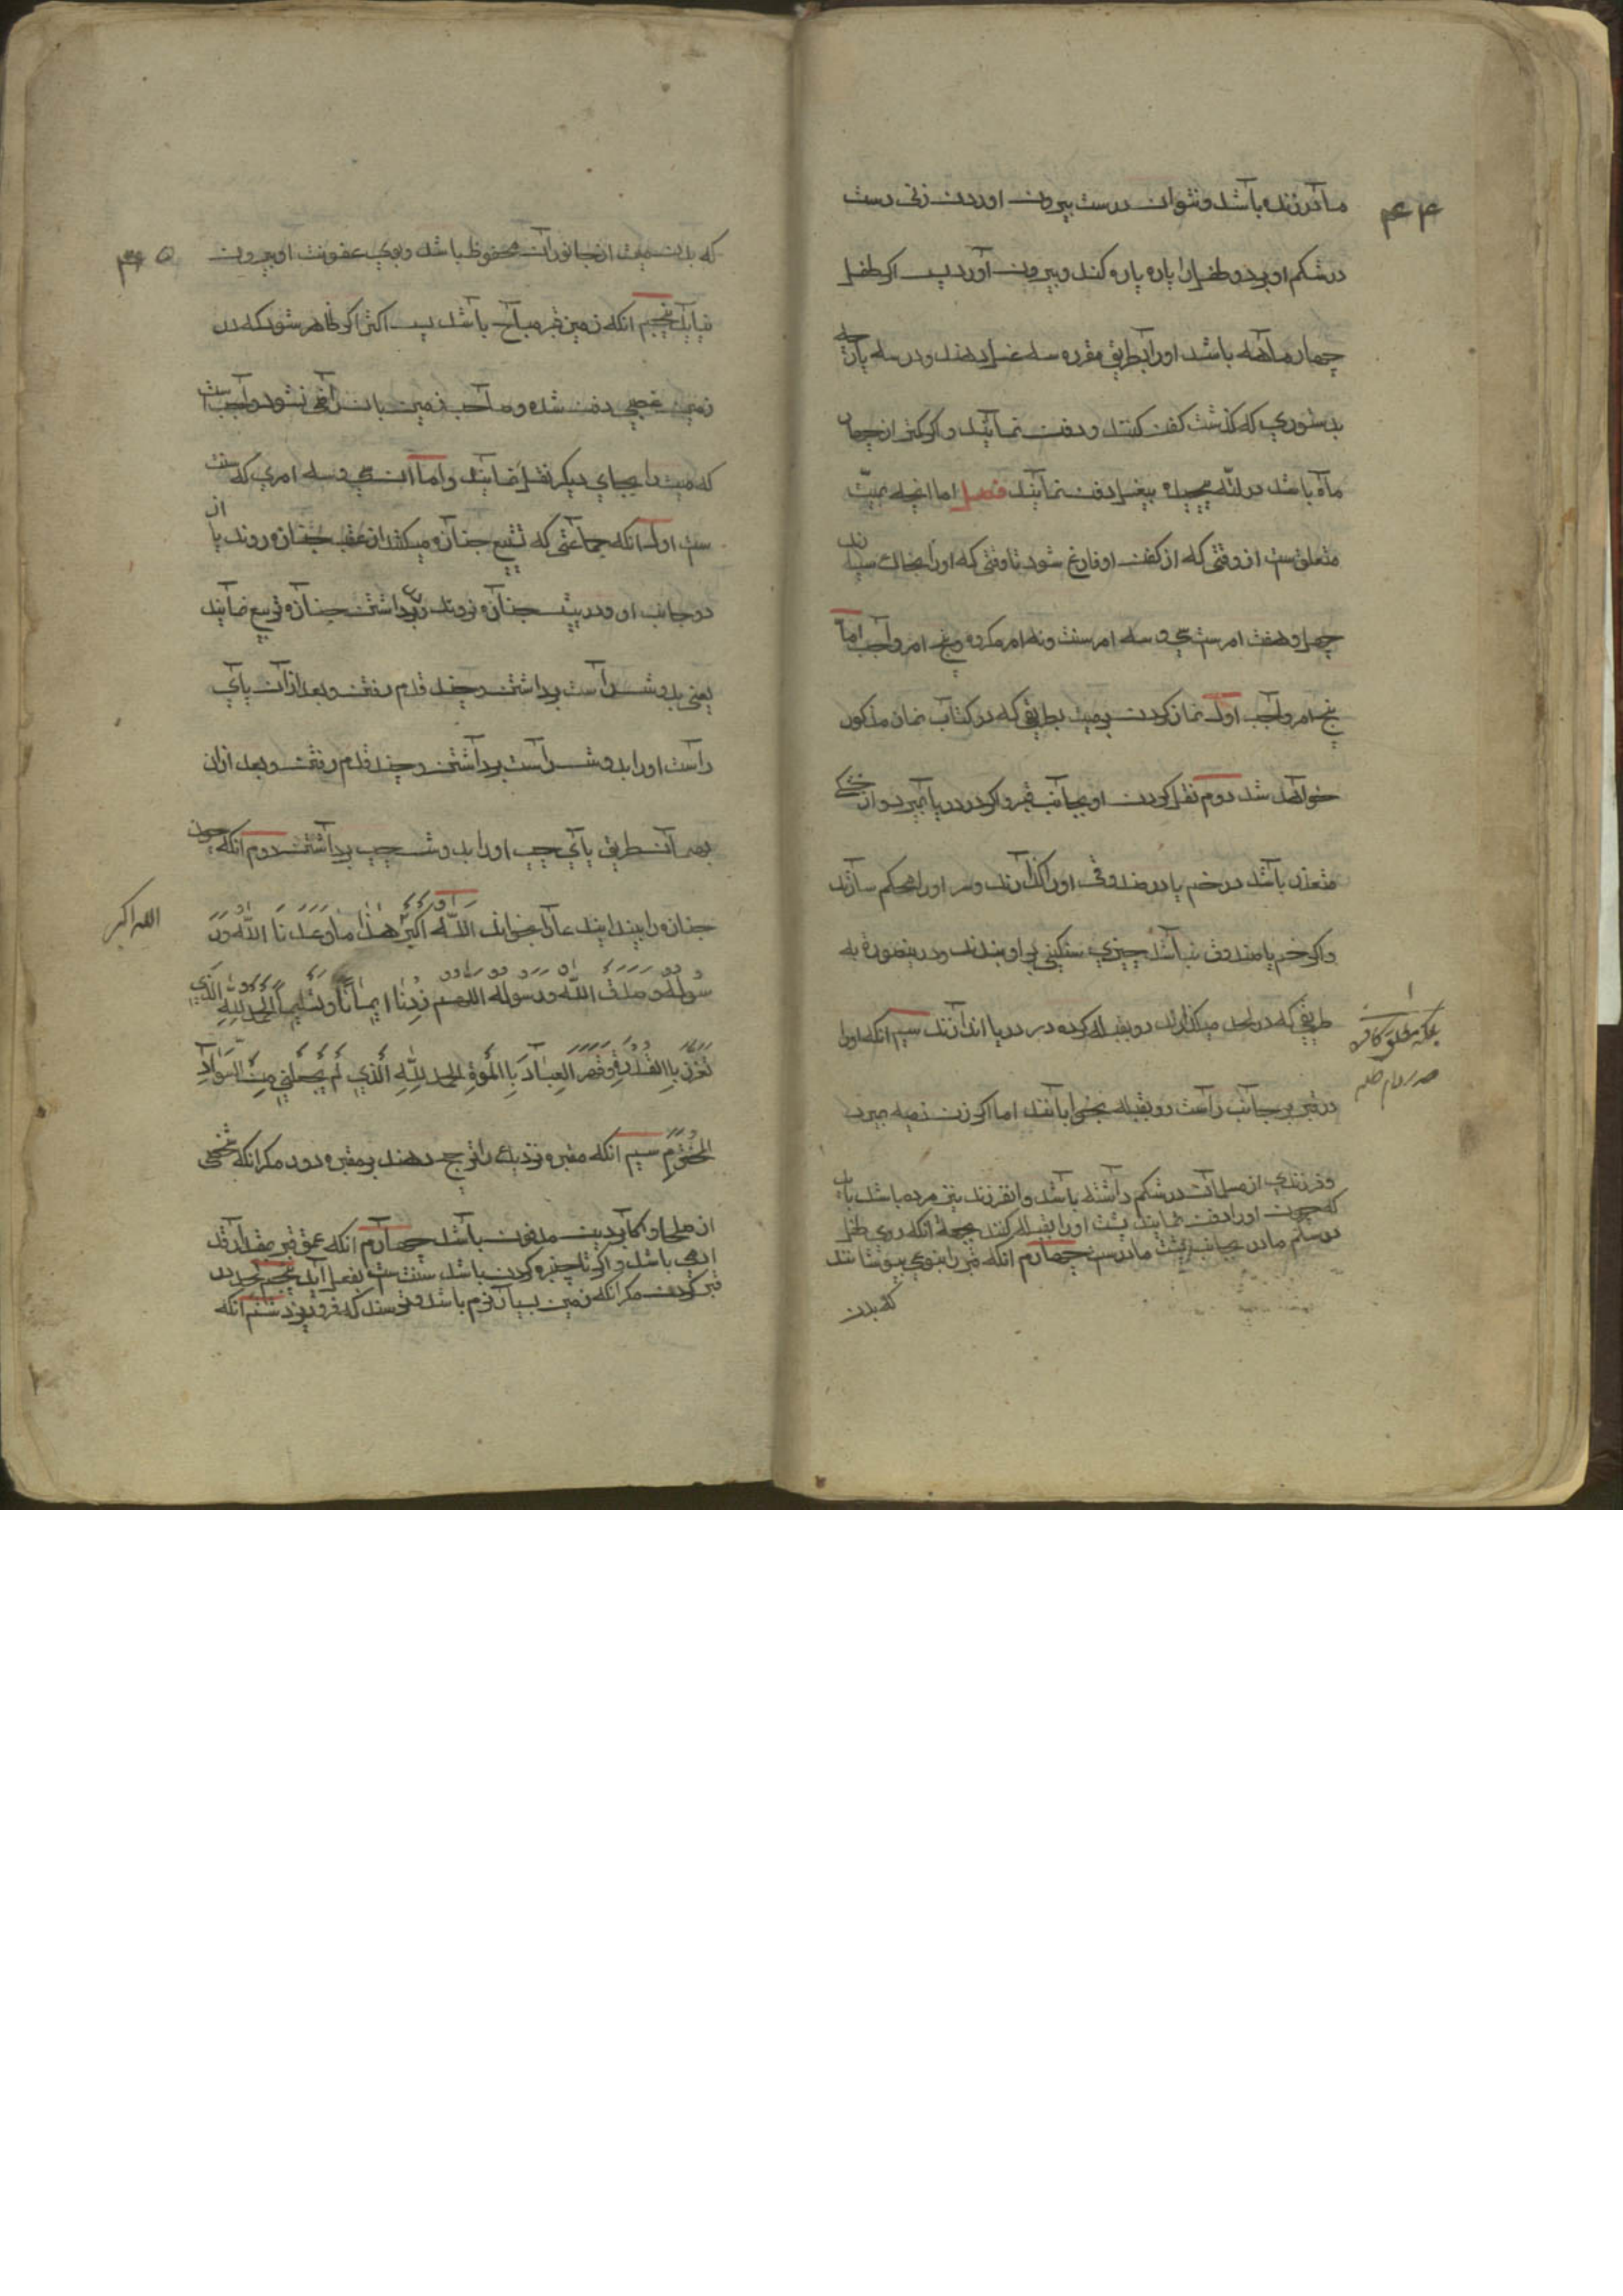 ۴۴
مادر زنده باشد و نتوان درست بیرون اوردن زنی دست
در شکم او برد و طفل را پاره پاره کند و بیرون آورد پس اکر طفل
چهار ماهه باشد او را بطریق مقرره سه غسل دهند و در سه پارچه
بدستوري که کذشت کفن کنند و دفن نمایند و اکر کمتر از چهار
ماه باشد در لتّه پیچیده بیغسل دفن نمایند فصل اما انچه بمیّت
متعلق ست از وقتی که از کفن او فارغ شود تا وقتی که او را بخاك سپارند
چهل و هفت امر ست سی و سه امر سنت و نه امر مکروه و پنج امر واجب اما
پنج امر واجب اول نماز کردن بر میت بطریقی که در کتاب نماز مذکور
خواهد شد دوم نقل کردن او بجانب قبر و اکر در دریا بمیرد و از خشکی
متعذر باشد در خم یا در صندوقی او را کذارند و سر او را محکم سازند
و اکر خم یا صندوق نباشد چیزي سنکینی بر او بندند و درینصورة به
طریقی که در لحد میکذارند رو بقبله کرده در دریا اندازند سیم انکه او را
در قبر بر جانب راست رو بقبله بخوابانند اما اکر زن ذمیه میرد
و فرزندي از مسلمان در شکم داشته باشد و انفرزند نیز مرده باشد باید
که چون او را دفن نمایند پشت او را بقبله کنند بجهة انکه روي طفل
در شکم مادر بجانب پشت مادرست چهارم انکه قبر را بنوعي بپوشانند
که بدن
۴۵
که بدن میت از جانوران محفوظ باشد و بوي عفونت او بیرون
نیاید پنجم انکه زمین قبر مباح باشد پس اکثر اکر ظاهر شود که در
زمین غصبی دفن شده و صاحب زمین بان راضی نشود واجب است
که میت را بجاي دیکر نقل نمایند و اما ان سی و سه امري که سنت
ست اول انکه جماعتی که تشیع جنازه میکنند از عقب جنازه روند یا از
دو جانب او و در پیش جنازه نروند و در برداشتن جنازه تربیع نمایند
یعنی بدوش راست برداشتن و چند قدم رفتن و بعد ازان پاي
راست او را بدوش راست برداشتن و چند قدم رفتن و بعد ازان
بهمان طریق پاي چپ او را بدوش چپ برداشتن دوم انکه چون
جنازه را ببینند این دعا را بخوانند اللّه اکبر هذا ما وعدنا اللّه ور
الله اکبر
سوله و صدق اللّه ورسوله اللهم زدنا ایماناً وتسلیماً الحمد للّهِ الذي
تعزز باالقدرة وقهر العباد باالموة الحمد للّه الذي لم یجعلني من السواد
المخترم سیم انکه مقبره نزدیك را ترجیح دهند بر مقبره دور مکر انکه شخصی
از صلحا و اکابر دین مدفون باشد چهارم انکه عمق قبر بمقدار قد
ادمی باشد و اکر تا چنبره کردن باشد سنت ست بفعل آید پنجم لحد در
قبر کردن مکر انکه زمین بسیار نرم باشد و ترسند که فرو ریزد ششم انکه